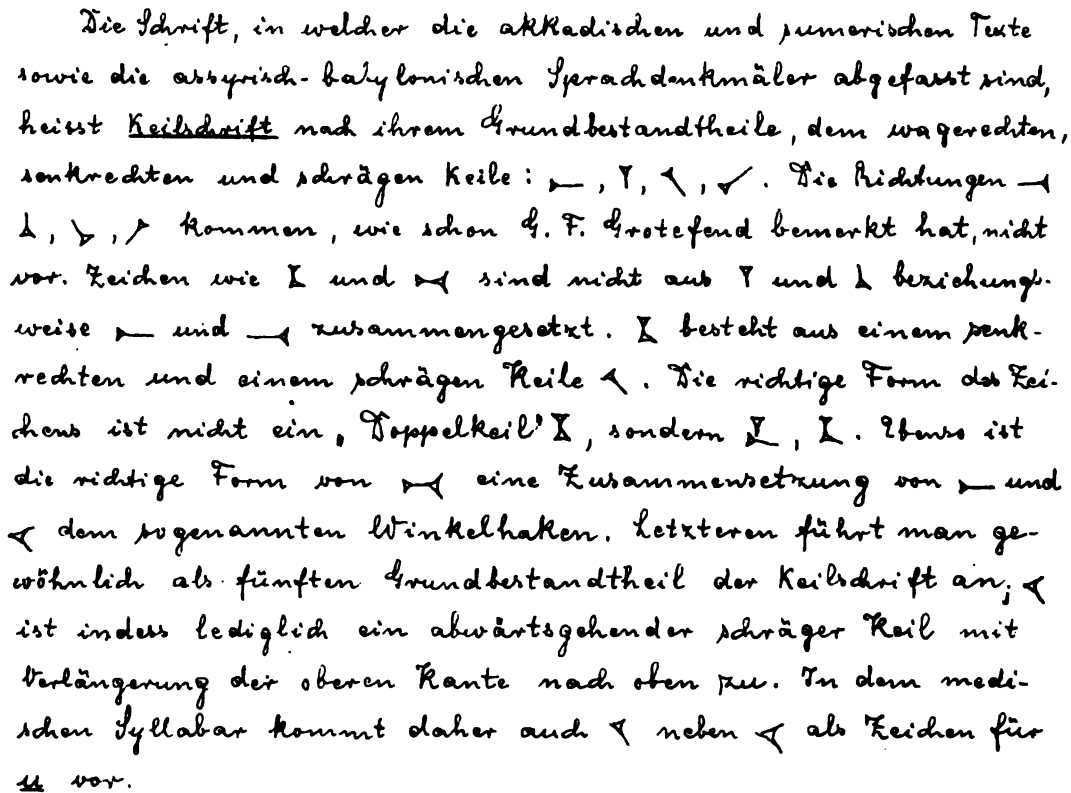 Die Schrift, in welcher die akkadischen und sumerischen Texte
sowie die assyrisch-babylonischen Sprachdenkmäler abgefasst sind,
heisst Keilschrift nach ihrem Grundbestandtheile, dem wagerechten,
senkrechten und schrägen Keile: 𒀸, 𒁹, 𒀹, 𒀺. Die Richtungen
, , kommen, wie schon G. F. Grotefend bemerkt hat, nicht
vor. Zeichen wie und sind nicht aus 𒁹 und beziehungs-
weise 𒀸 und zusammengesetzt. besteht aus einem senk-
rechten und einem schrägen Keile 𒀹. Die richtige Form des Zei-
chens ist nicht ein „Doppelkeil“ , sondern , . Ebenso ist
die richtige Form von eine Zusammensetzung von 𒀸 und
𒌋 dem sogenannten Winkelhaken. Letzteren führt man ge-
wöhnlich als fünften Grundbestandtheil der Keilschrift an; 𒌋
ist indess lediglich ein abwärtsgehender schräger Keil mit
Verlängerung der oberen Kante nach oben zu. In dem medi-
schen Syllabar kommt daher auch 𒀹 neben 𒌋 als Zeichen für
u vor.